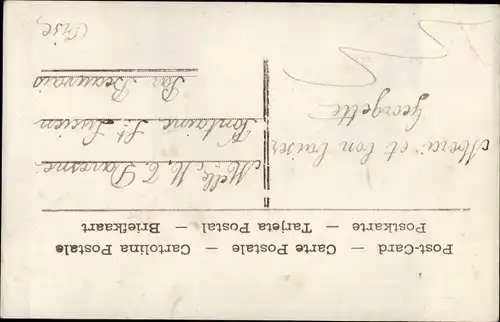 Post-Card — Carte Postale — Cartolina Postale
Postkarte — Tarjeta Postal — Briefkaart
et bon baiser
Georgette
Melle M. T. Daresne
Fontaine St. Lucien
Par Beauvais
Oise